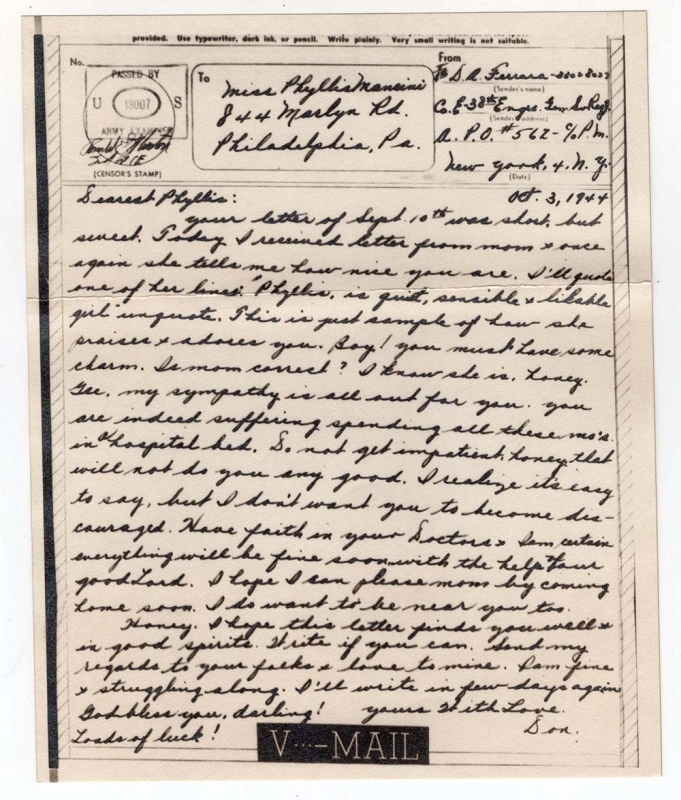 provided. Use typewriter, dark ink, or pencil. Write plainly. Very small writing is not suitable.
No.
PASSED BY
U 13007 S
ARMY EXAMINER
(CENSOR'S STAMP)
To
Miss Phyllis Mancini
844 Marlyn Rd.
Philadelphia, Pa.
From
D. A. Ferrara-33028027
(Sender's name)
Co. E-38th Engrs. Gen. Sv. Regt.
(Sender's address)
A.P.O. #562-c/o P.M.
New York, 4, N.Y.
(Date)
Oct. 3, 1944
Dearest Phyllis:
your letter of Sept. 10th was short, but
sweet. Today I received letter from mom & once
again she tells me how nice you are. I'll quote
one of her lines: "Phyllis, is quiet, sensible & likable
girl" unquote. This is just sample of how she
praises & adores you. Boy! you must have some
charm. Is mom correct? I know she is, honey.
Gee, my sympathy is all out for you. you
are indeed suffering spending all these mo's.
in a hospital bed. Do not get impatient, honey, that
will not do you any good. I realize it's easy
to say, but I don't want you to become dis-
couraged. Have faith in your Doctors & I am certain
everything will be fine soon with the help of our
good Lord. I hope I can please mom by coming
home soon. I do want to be near you too.
Honey, I hope this letter finds you well &
in good spirits. Write if you can. Send my
regards to your folks & love to mine. I am fine
& struggling along. I'll write in few days again
God bless you, darling! yours With Love.
Loads of luck! Don.
V···-MAIL